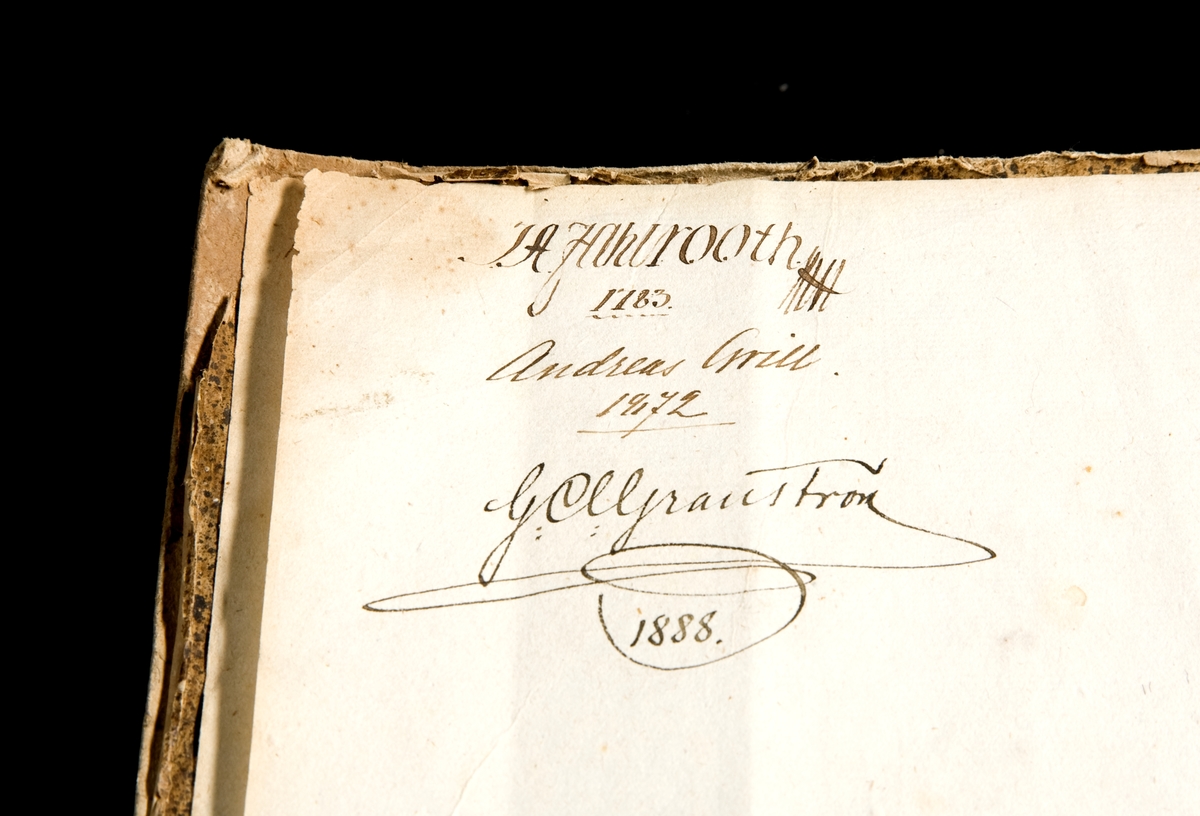 J. A Fahlrooth
1783.
Andreas Grill.
1872
G: A: Granström
1888.